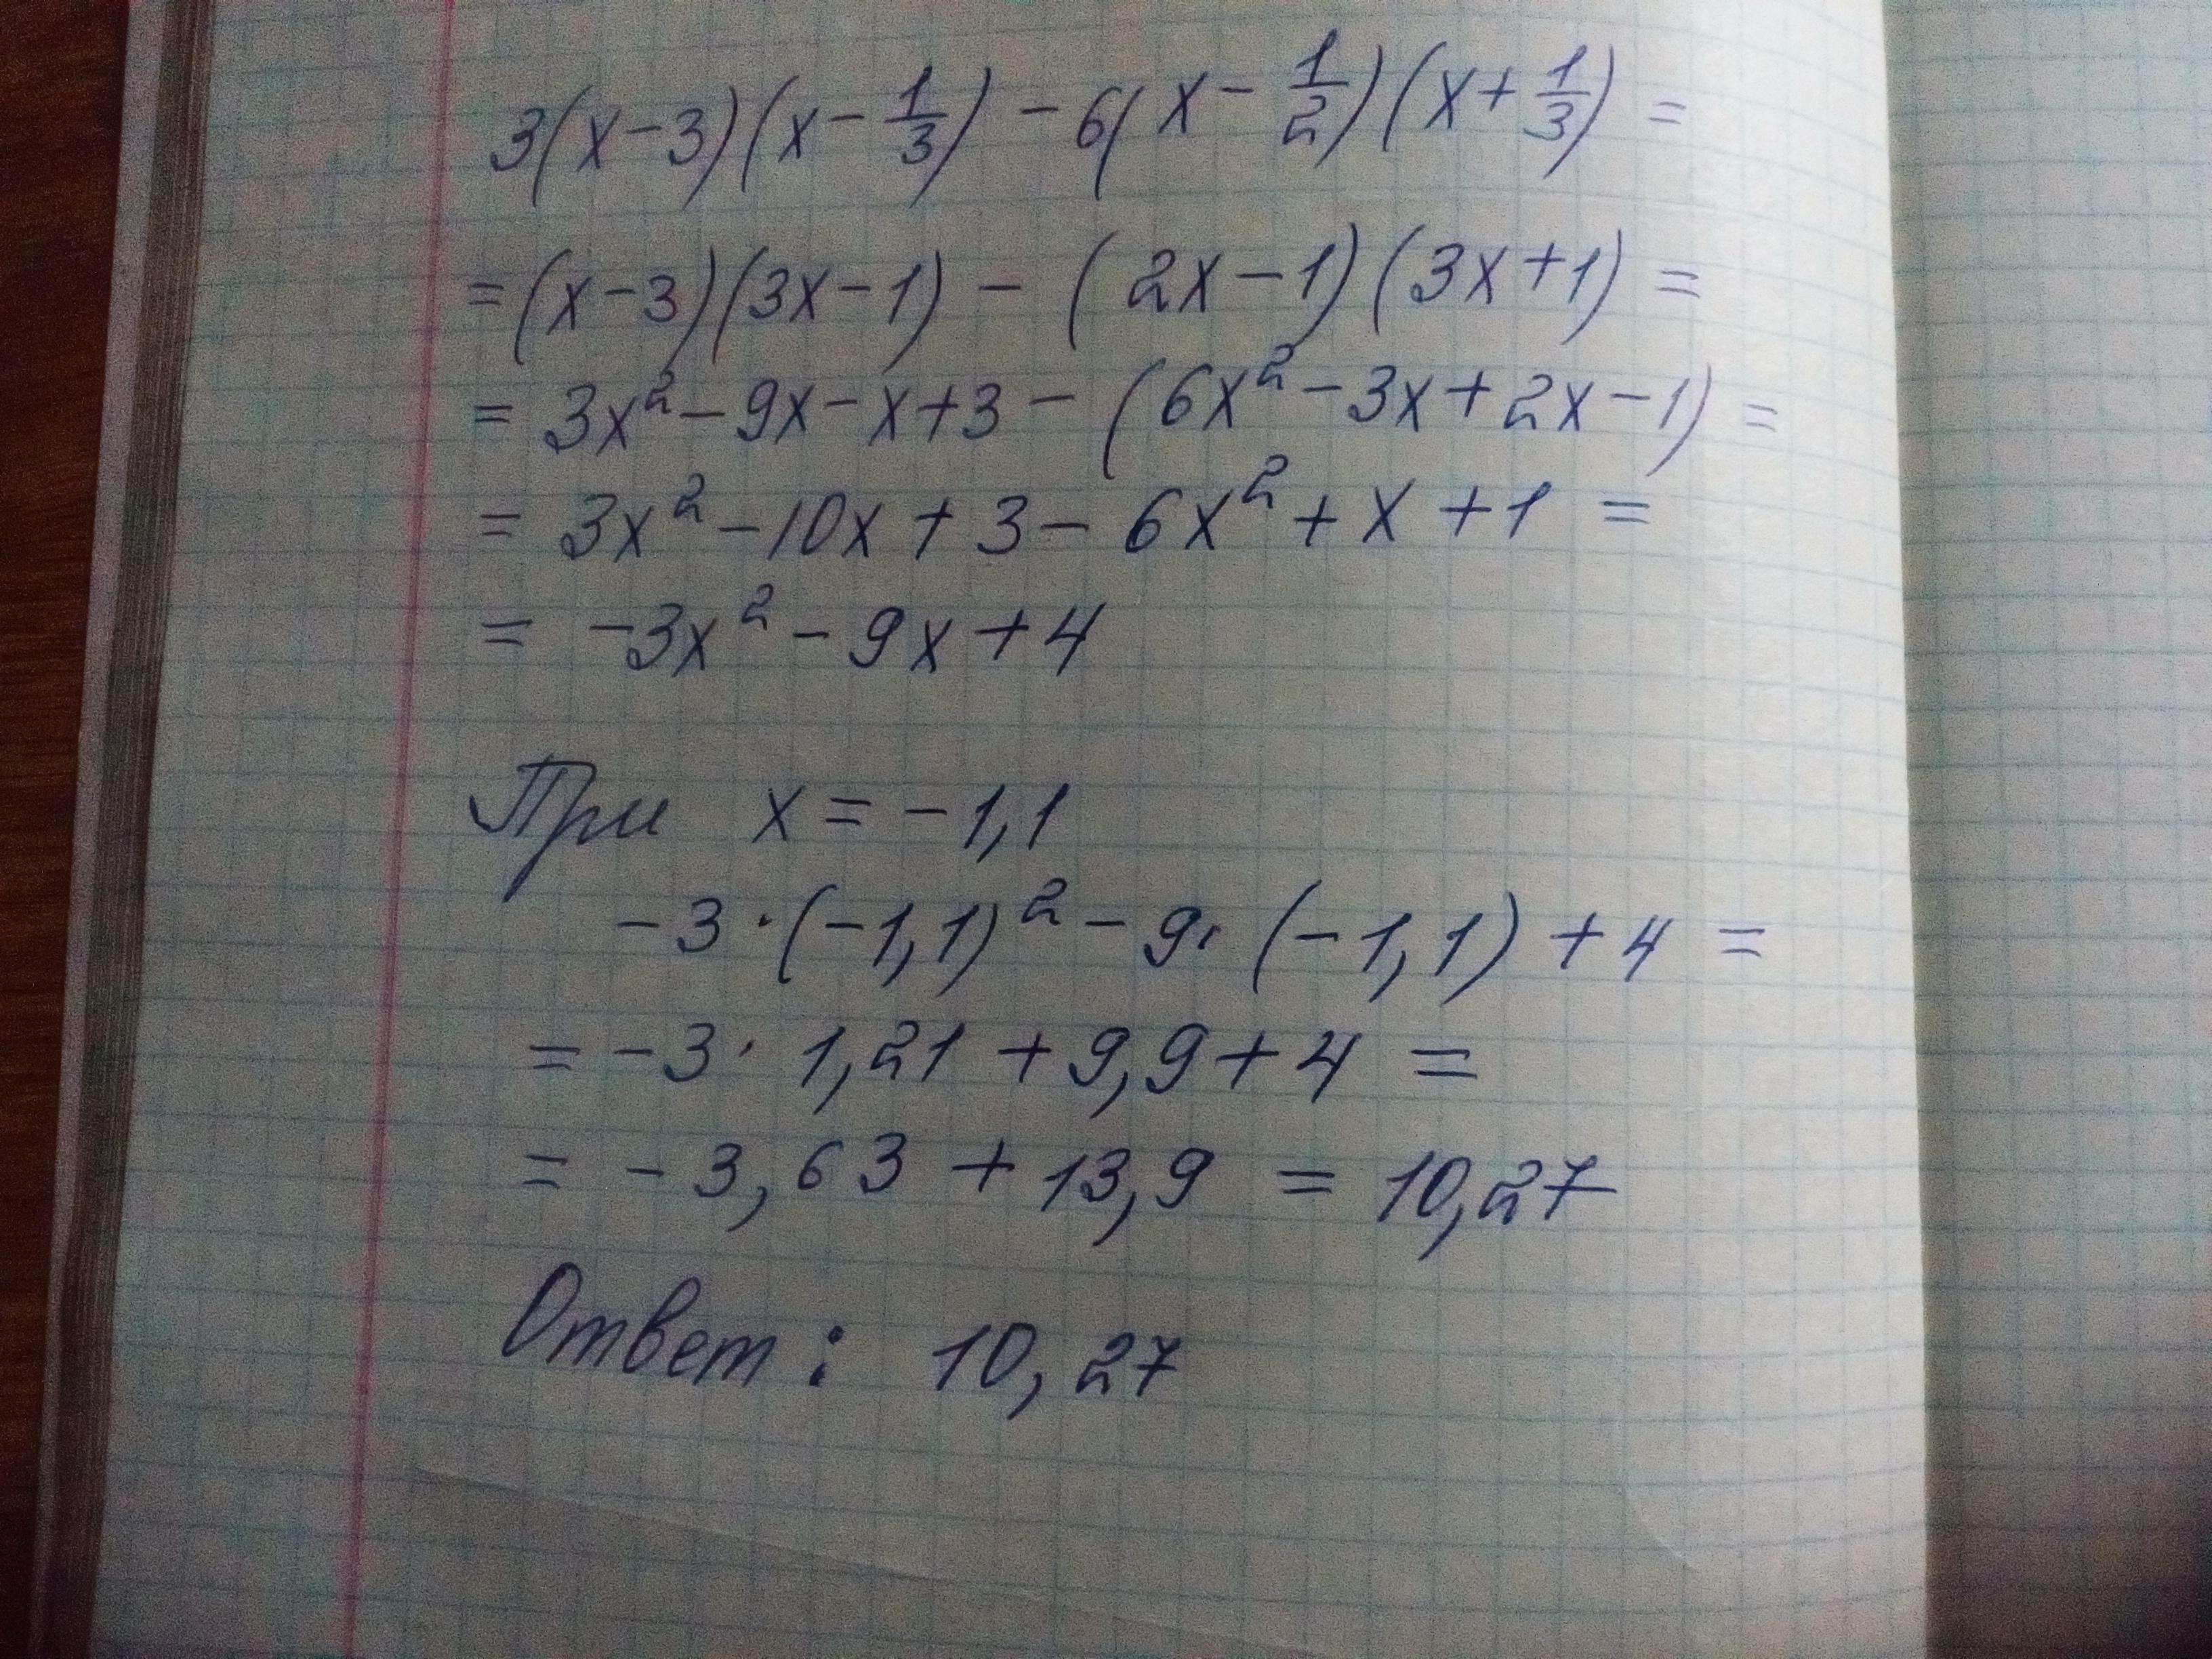 3(x-3)(x-1/3) - 6(x-1/2)(x+1/3) =
= (x-3)(3x-1) - (2x-1)(3x+1) =
= 3x² - 9x - x + 3 - (6x² - 3x + 2x - 1) =
= 3x² - 10x + 3 - 6x² + x + 1 =
= -3x² - 9x + 4
При x = -1,1
-3·(-1,1)² - 9·(-1,1) + 4 =
= -3· 1,21 + 9,9 + 4 =
= -3,63 + 13,9 = 10,27
Ответ: 10,27